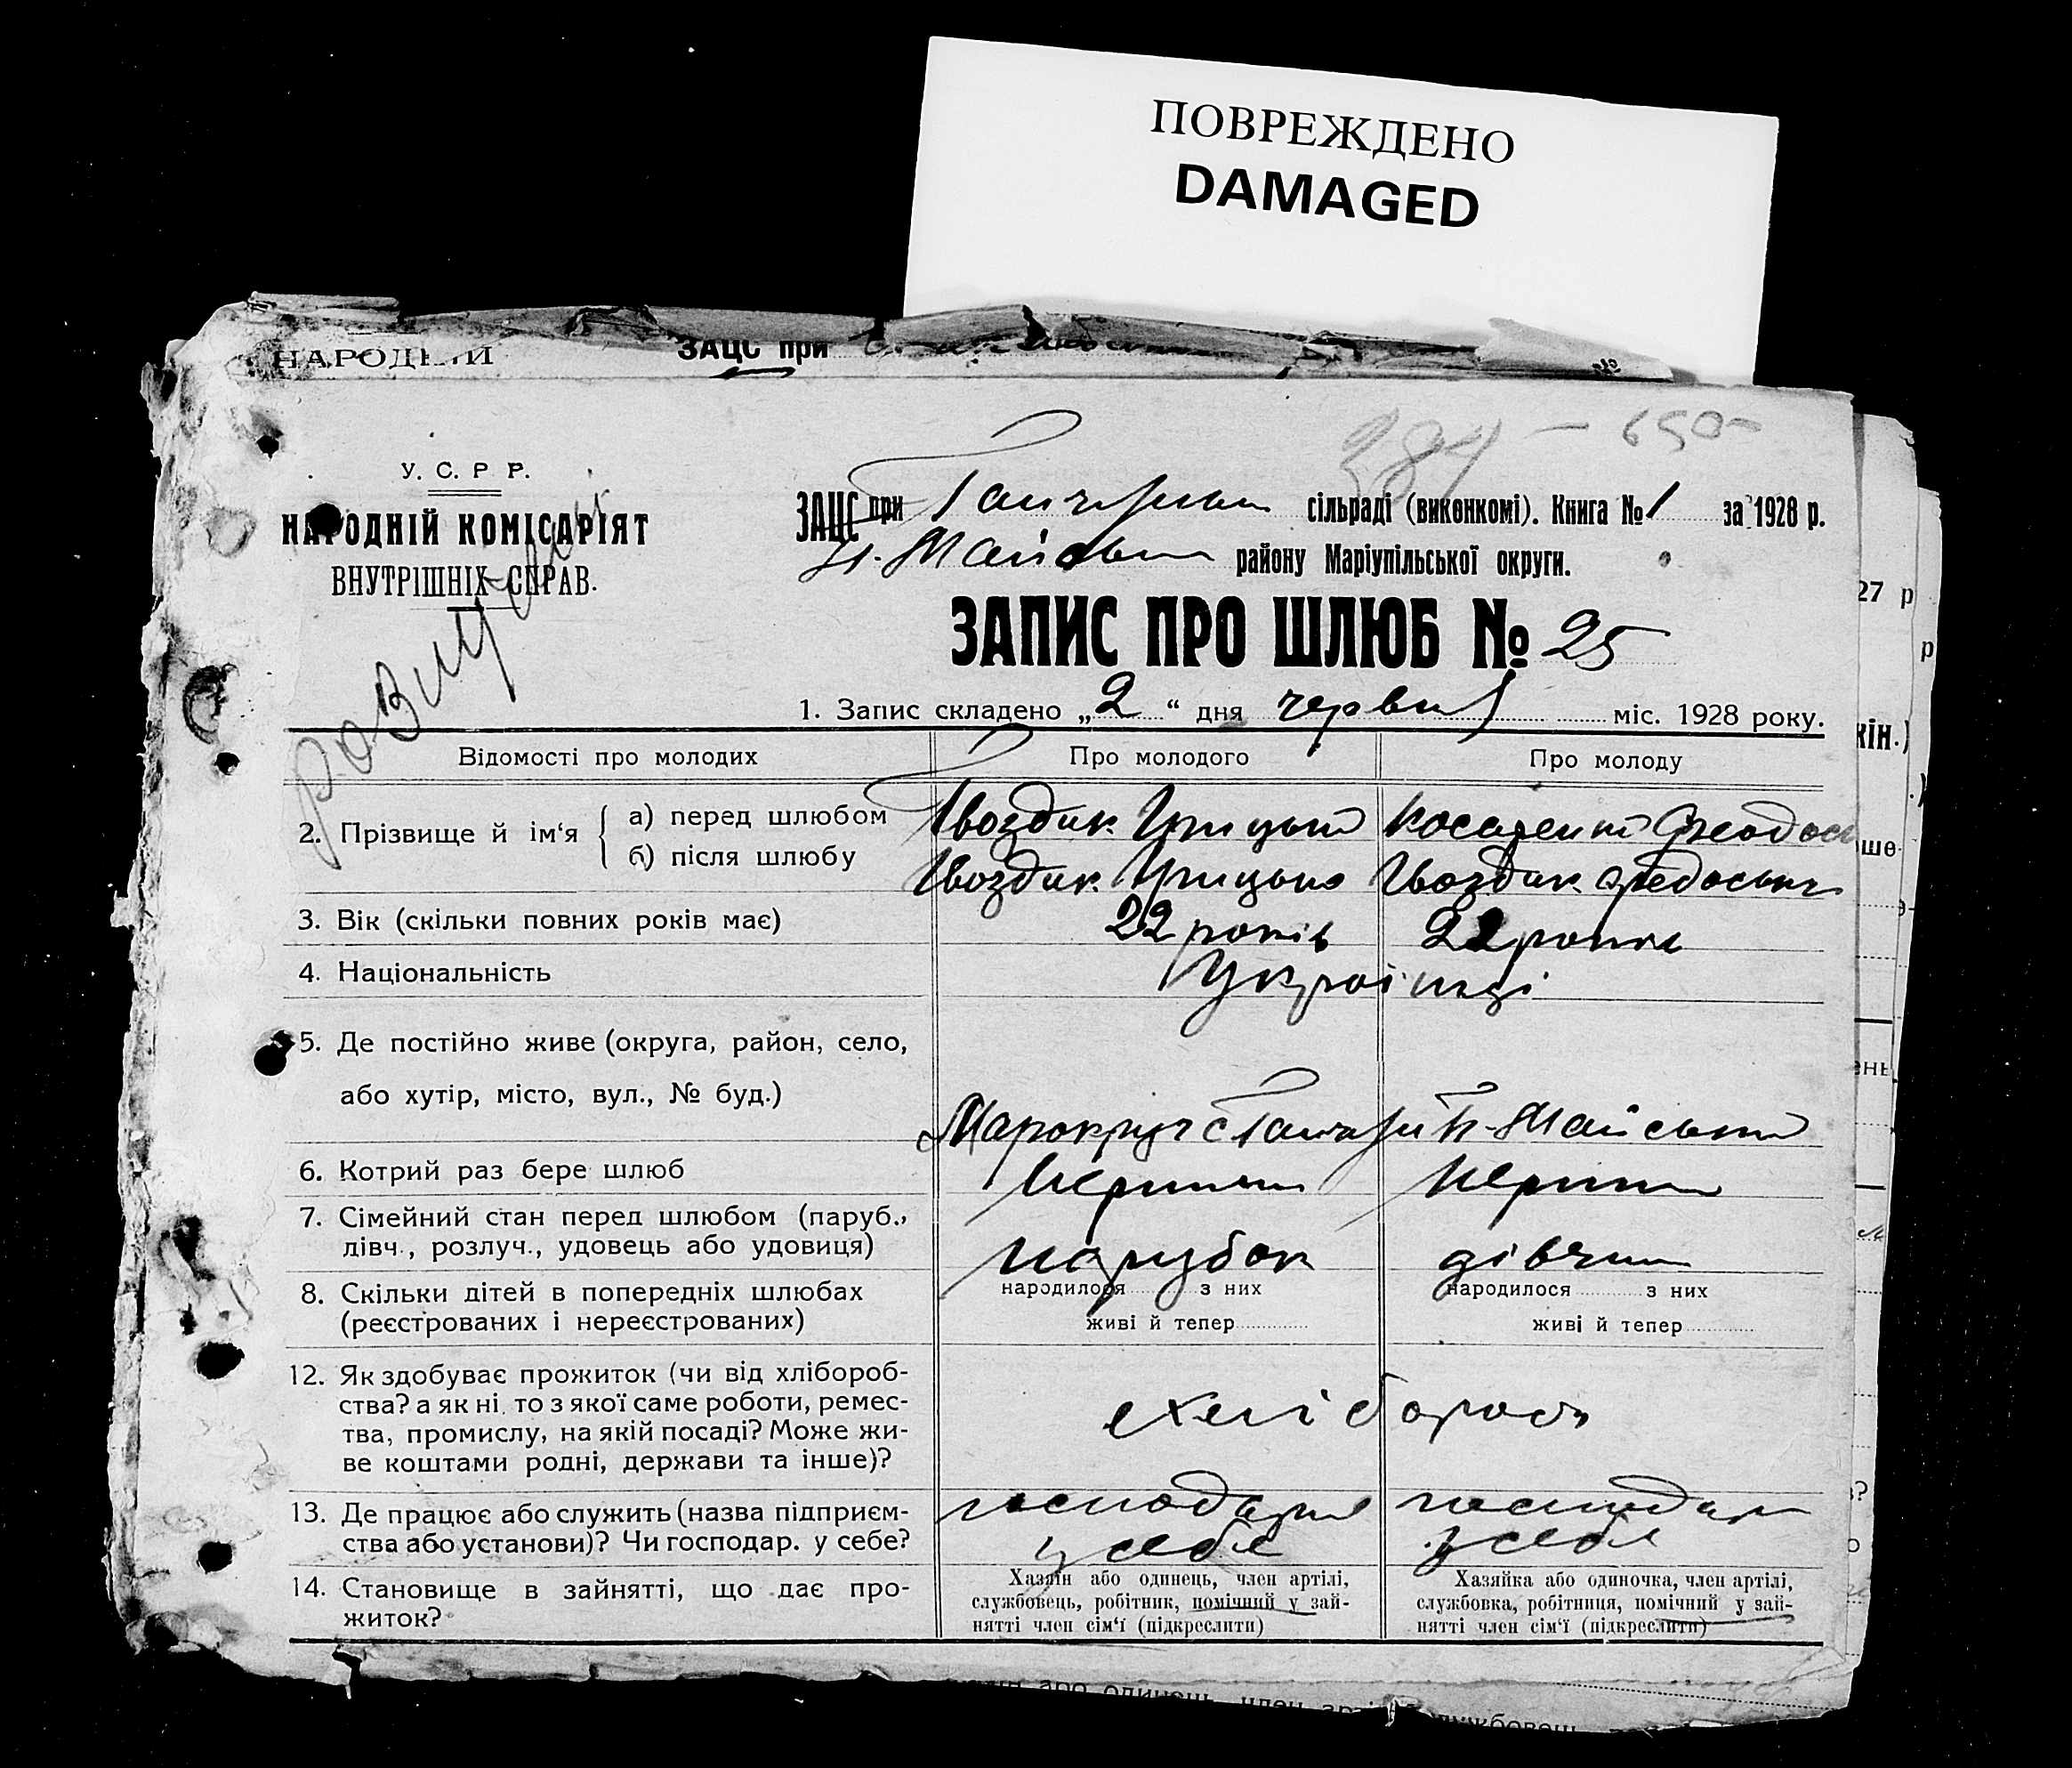 ПОВРЕЖДЕНО
DAMAGED
ЗАЦС при
384 – 650 –
У. С. Р. Р.
НАРОДНІЙ КОМІСАРІЯТ
ВНУТРІШНІХ СПРАВ.
ЗАЦС при сільраді (виконкомі). Книга № 1 за 1928 р.
району Маріупільської округи.
ЗАПИС ПРО ШЛЮБ № 25
1. Запис складено „2“ дня червня міс. 1928 року.
Відомості про молодих Про молодого Про молоду
2. Прізвище й ім‘я { а) перед шлюбом Гвоздик Грицько
б) після шлюбу Гвоздик Грицько Гвоздик
3. Вік (скільки повних років має) 22 років 22 років
4. Національність Українці
5. Де постійно живе (округа, район, село,
або хутір, місто, вул., № буд.)
6. Котрий раз бере шлюб Перший Перший
7. Сімейний стан перед шлюбом (паруб.,
дівч., розлуч., удовець або удовиця) парубок дівчина
8. Скільки дітей в попередніх шлюбах народилося з них народилося з них
(реєстрованих і нереєстрованих) живі й тепер живі й тепер
12. Як здобуває прожиток (чи від хлібороб-
ства? а як ні, то з якої саме роботи, ремес-
тва, промислу, на якій посаді? Може жи-
ве коштами родні, держави та інше)?
хлібороб
13. Де працює або служить (назва підприєм-
ства або установи)? Чи господар. у себе?
господарює у себе у себе
14. Становище в зайнятті, що дає про-
житок?
Хазяїн або одинець, член артілі,
службовець, робітник, помічний у зай-
нятті член сім‘ї (підкреслити)
Хазяйка або одиночка, член артілі,
службовка, робітниця, помічний у зай-
нятті член сім‘ї (підкреслити)
27 р